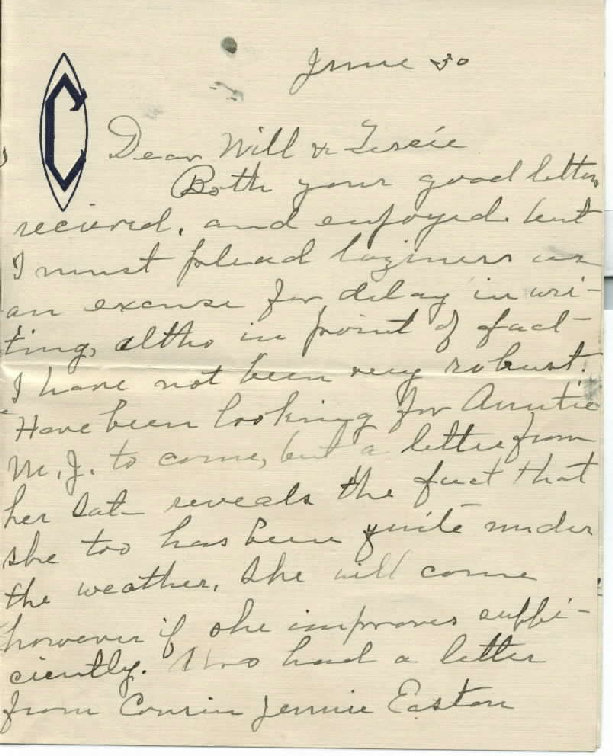 C
June 30
Dear Will &
Both your good letters
recieved, and enjoyed but
I must plead laziness as
an excuse for delay in wri-
ting, altho in point of fact
I have not been very robust.
Have been looking for Auntie
M. J. to come, but a letter from
her Sat. reveals the fact that
she too has been quite under
the weather. She will come
however if she improves suffi-
ciently. Also had a letter
from Cousin Jennie Easton